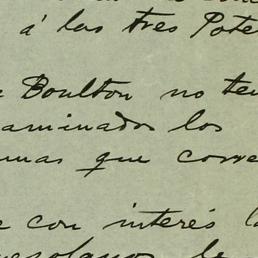 á las tres Pote
Boulton no ten
aminados los
mas que conve
con interés l